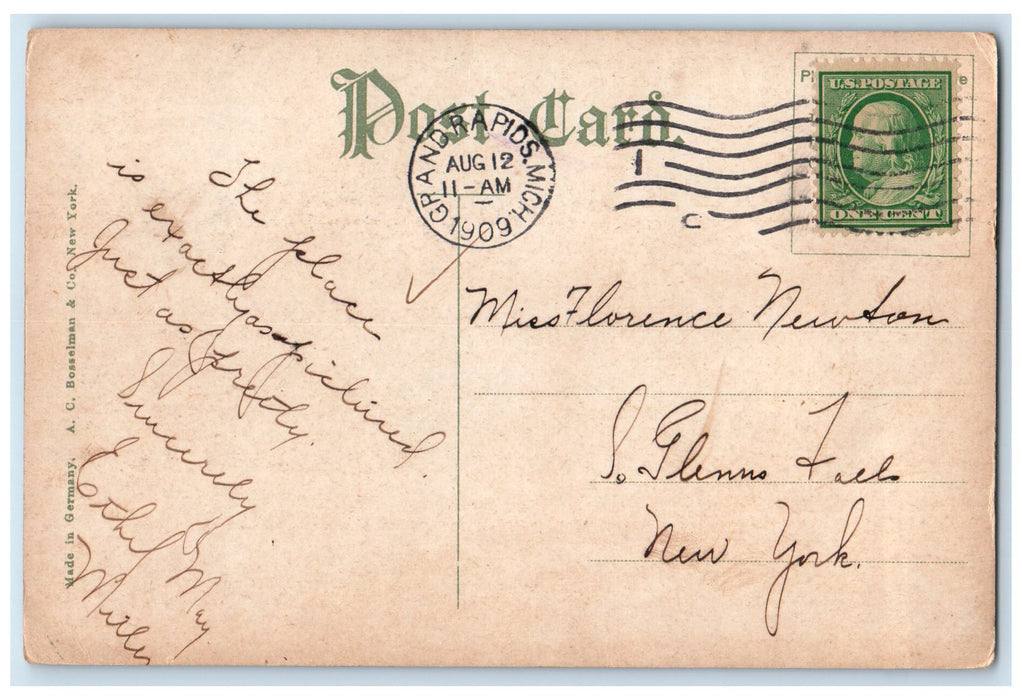 Post Card.
GRAND RAPIDS. MICH.
AUG 12
11-AM
1909
1
C
U.S. POSTAGE
ONE CENT
The place
is exactly as pictured.
Just as pretty.
Sincerely
Ethel May
Miller
Miss Florence Newton
S. Glenns Falls
New York.
Made in Germany. A. C. Bosselman & Co. New York.